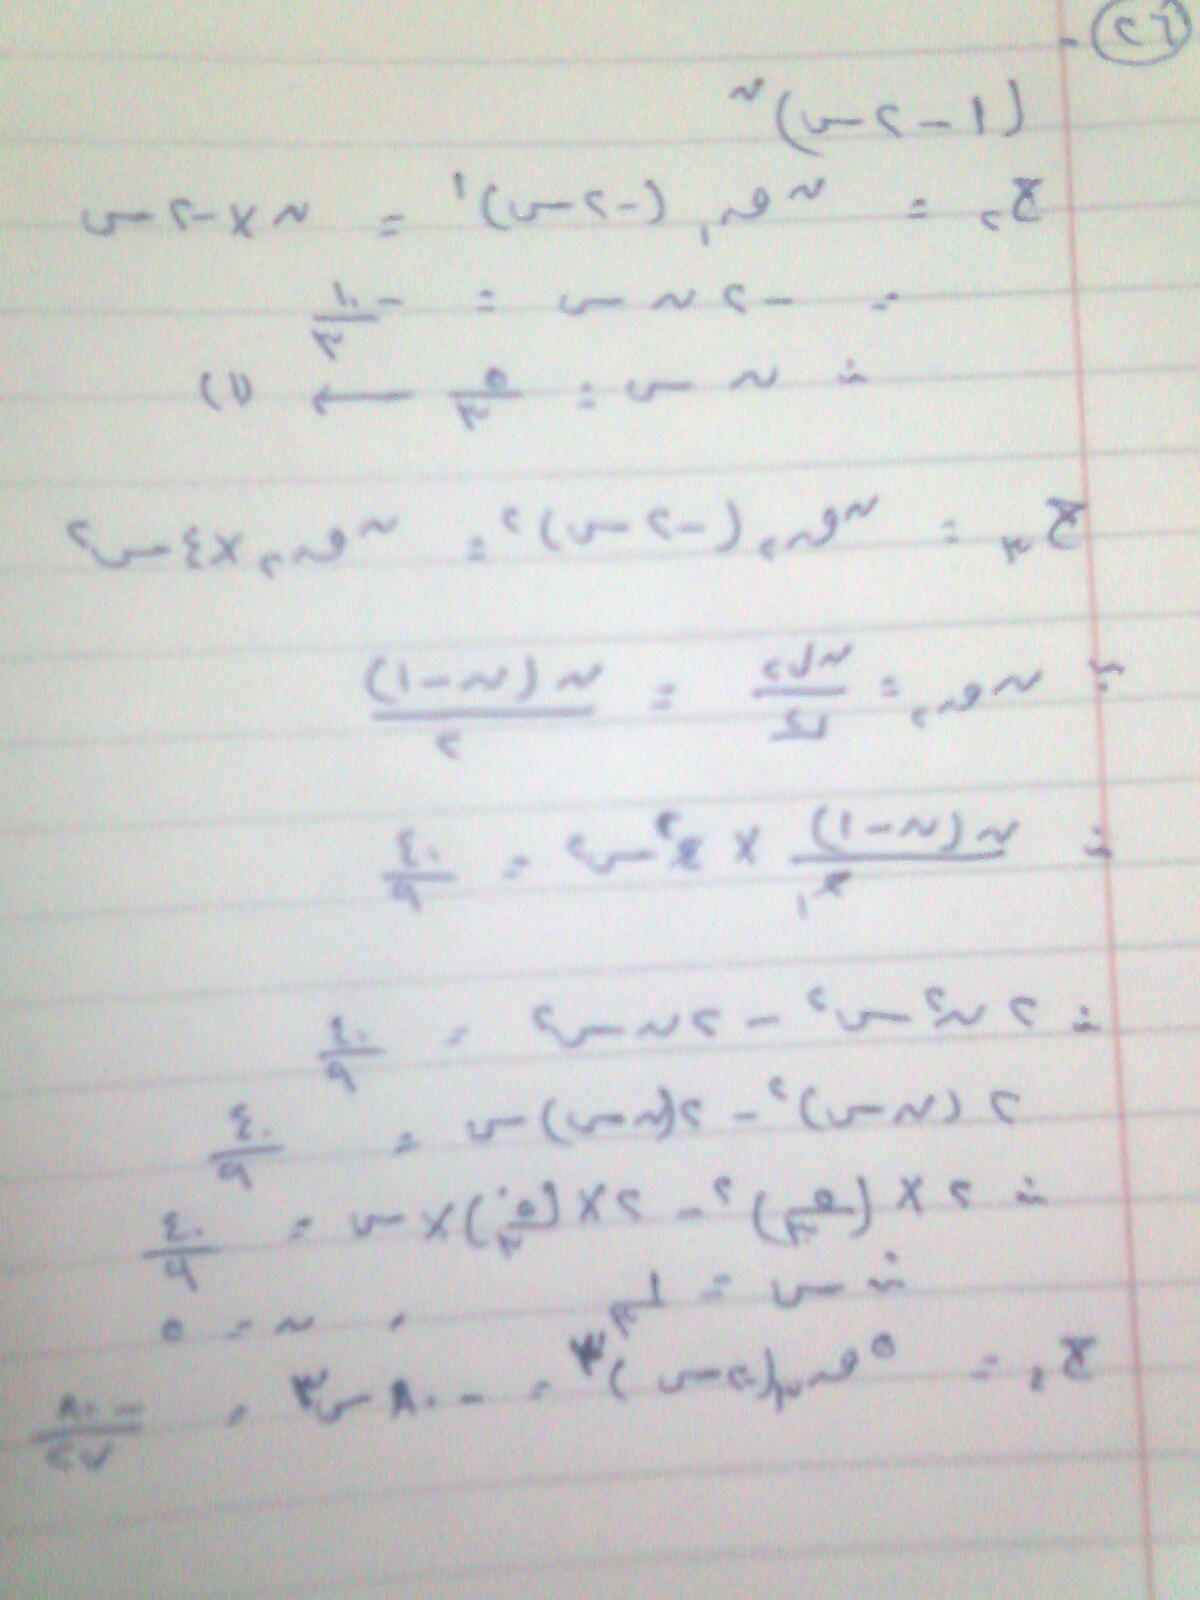 ٢٦ -
(١ - ٢س)^ن
ح٢ = ن ق١ (-٢س)^١ = ن × -٢س
= -٢ ن س = -١٠/٣
∴ ن س = ٥/٣ ← (١)
ح٣ = ن ق٢ (-٢س)^٢ = ن ق٢ × ٤س^٢
∵ ن ق٢ = ن ل٢ / ٢! = ن (ن - ١) / ٢
∴ ن (ن - ١) / ٢ × ٤ س^٢ = ٤٠/٩
∴ ٢ ن^٢ س^٢ - ٢ ن س^٢ = ٤٠/٩
٢ (ن س)^٢ - ٢ (ن س) س = ٤٠/٩
∴ ٢ × (٥/٣)^٢ - ٢ × (٥/٣) × س = ٤٠/٩
∴ س = ١/٣ ، ن = ٥
ح٤ = ٥ ق٣ (-٢س)^٣ = -٨٠ س^٣ = -٨٠/٢٧